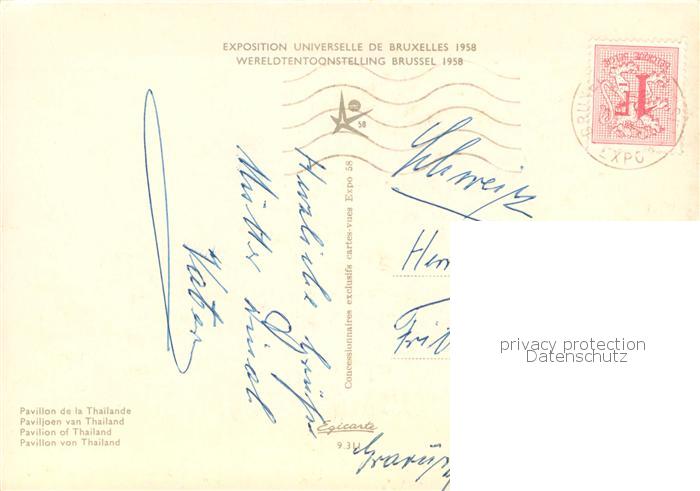 EXPOSITION UNIVERSELLE DE BRUXELLES 1958
WERELDTENTOONSTELLING BRUSSEL 1958
58
1F
EXPO
Schweiz
Herr
Herzliche Grüsse
Mutter und
Vater
Concessionnaires exclusifs cartes-vues Expo 58
privacy protection
Datenschutz
Pavillon de la Thaïlande
Paviljoen van Thailand
Pavilion of Thailand
Pavillon von Thailand
Egicarte
9.311